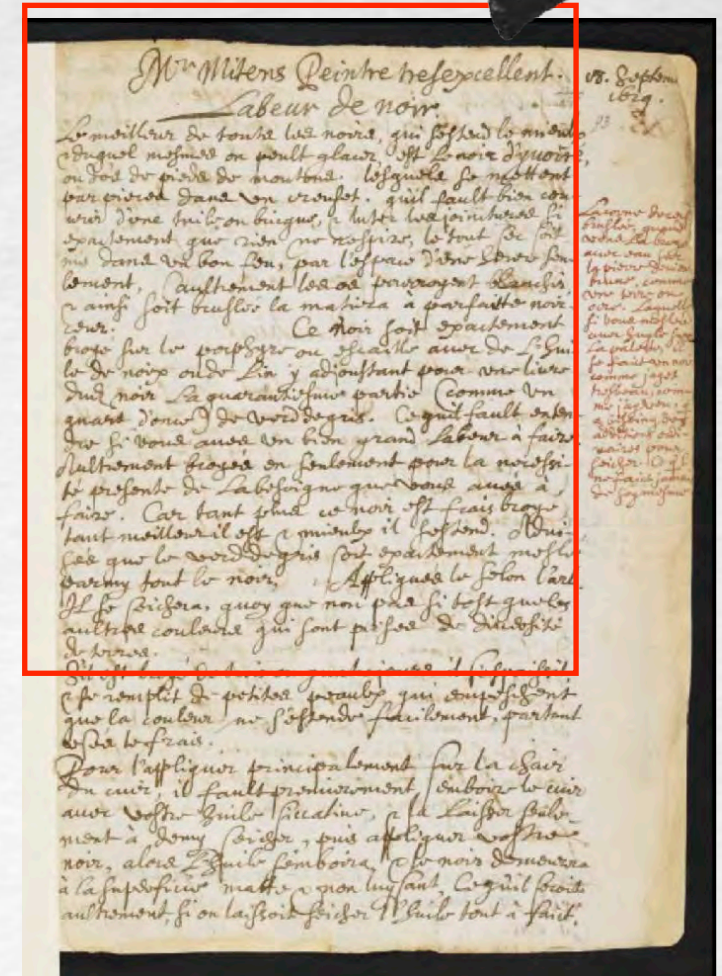 Mr Mitens Peintre tresexcellent.
Labeur de noir
Le meilleur de touts les noirs, qui s'estend le mieulx
& duquel mesmes on peult glacer, est Le noir d'yvoire,
ou d'os de pieds de moutons. lesquels se mettent
par pieces dans un creuset. qu'il fault bien cou-
vrir d'une tuile ou bricque, & luter les joinctures si
exactement que rien ne respire, le tout sec soit
mis dans un bon feu, par l'espace d'une heure seu-
lement, aultrement les os
& ainsi soit bruslee la matiera à parfaitte noir-
ceur. Ce Noir soit exactement
broyé sur le porphyre ou escaille avec de L'hui-
le de noix ou de Lin y adjoustant pour une livre
dud. noir La quarantiesme partie (comme un
quart d'once) de verddegris. Ce quil fault enten-
dre si vous aues un bien grand Labeur à faire.
Aultrement broyés en seulement pour la necessi-
té presente de La besoigne que vous aues à
faire. Car tant plus ce noir est frais broyé
tant meilleur il est & mieulx il s'estend. Advi-
sés que le verddegris soit exactement meslé
parmy tout le noir. Appliqués le selon l'art.
Il se seichera, quoy que non pas si tost que les
aultres couleurs qui sont de diversité
de terres.
& se remplit de petites peaulx qui empeschent
que la couleur ne s'estende facilement, partant
usés le frais.
Pour l'appliquer principalement sur la chair
du cuir, il fault premierement, emboire le cuir
avec vostre huile siccative, & la Laisser seule-
ment à demy seicher, puis appliquer vostre
noir, alors L'huile s'emboira, & le noir demeurera
à la superficie matte & non luysant, Ce quil seroit
aultrement, si on laissoit seicher l'huile tout à faict.
18. Septem
1629.
93
La corne de cerf
bruslee, quand
vous La broyé
avec eau sur
la pierre devient
brune, comme
une terre ou
ocre. Laquelle
si vous meslés
avec huile sur
La palette,
se faict un noir
comme jayet